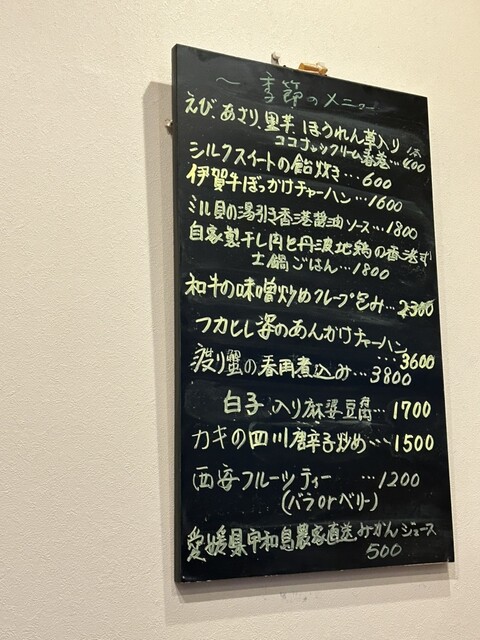 ～ 季節のメニュー
えび、あさり、里芋、ほうれん草入り
ココナッツクリーム春巻…1本400
シルクスイートの飴炊き…600
伊賀牛ぶっかけチャーハン…1600
ミル貝の湯引き香港醤油ソース…1800
自家製干し肉と丹波地鶏の香港式
土鍋ごはん…1800
和牛の味噌炒めクレープ包み…2300
フカヒレ姿のあんかけチャーハン
…3600
渡り蟹の春雨煮込み…3800
白子入り麻婆豆腐…1700
カキの四川唐辛子炒め…1500
西安フルーツティー …1200
(バラorベリー)
愛媛県宇和島農家直送みかんジュース
500